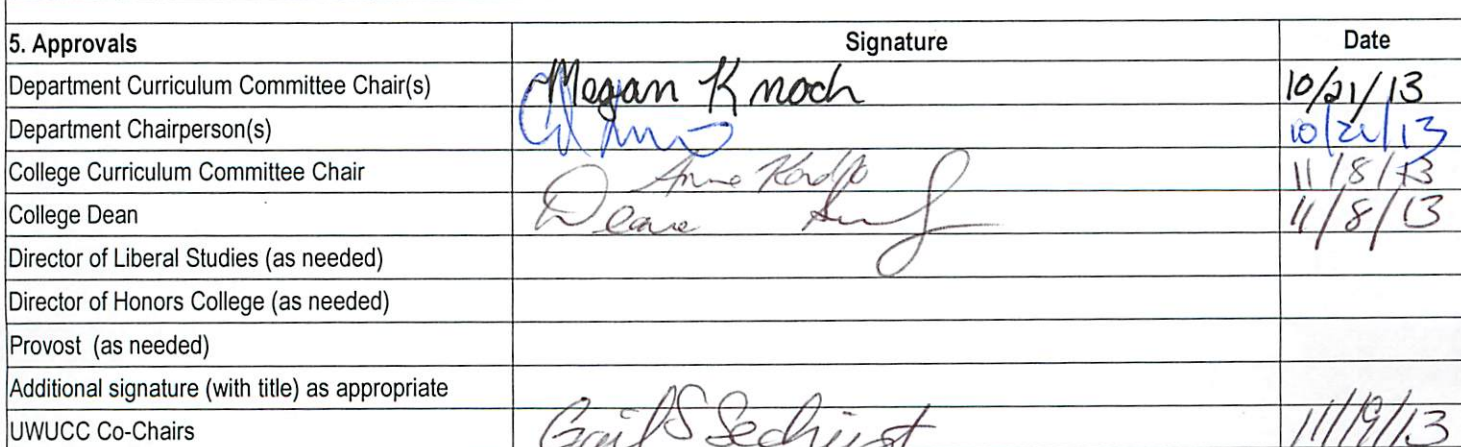 5. Approvals Signature Date
Department Curriculum Committee Chair(s) Megan Knoch 10/21/13
Department Chairperson(s) 10/21/13
College Curriculum Committee Chair Anne Kondo 11/8/13
College Dean Deane 11/8/13
Director of Liberal Studies (as needed)
Director of Honors College (as needed)
Provost (as needed)
Additional signature (with title) as appropriate
UWUCC Co-Chairs Gail S Sechrist 11/19/13